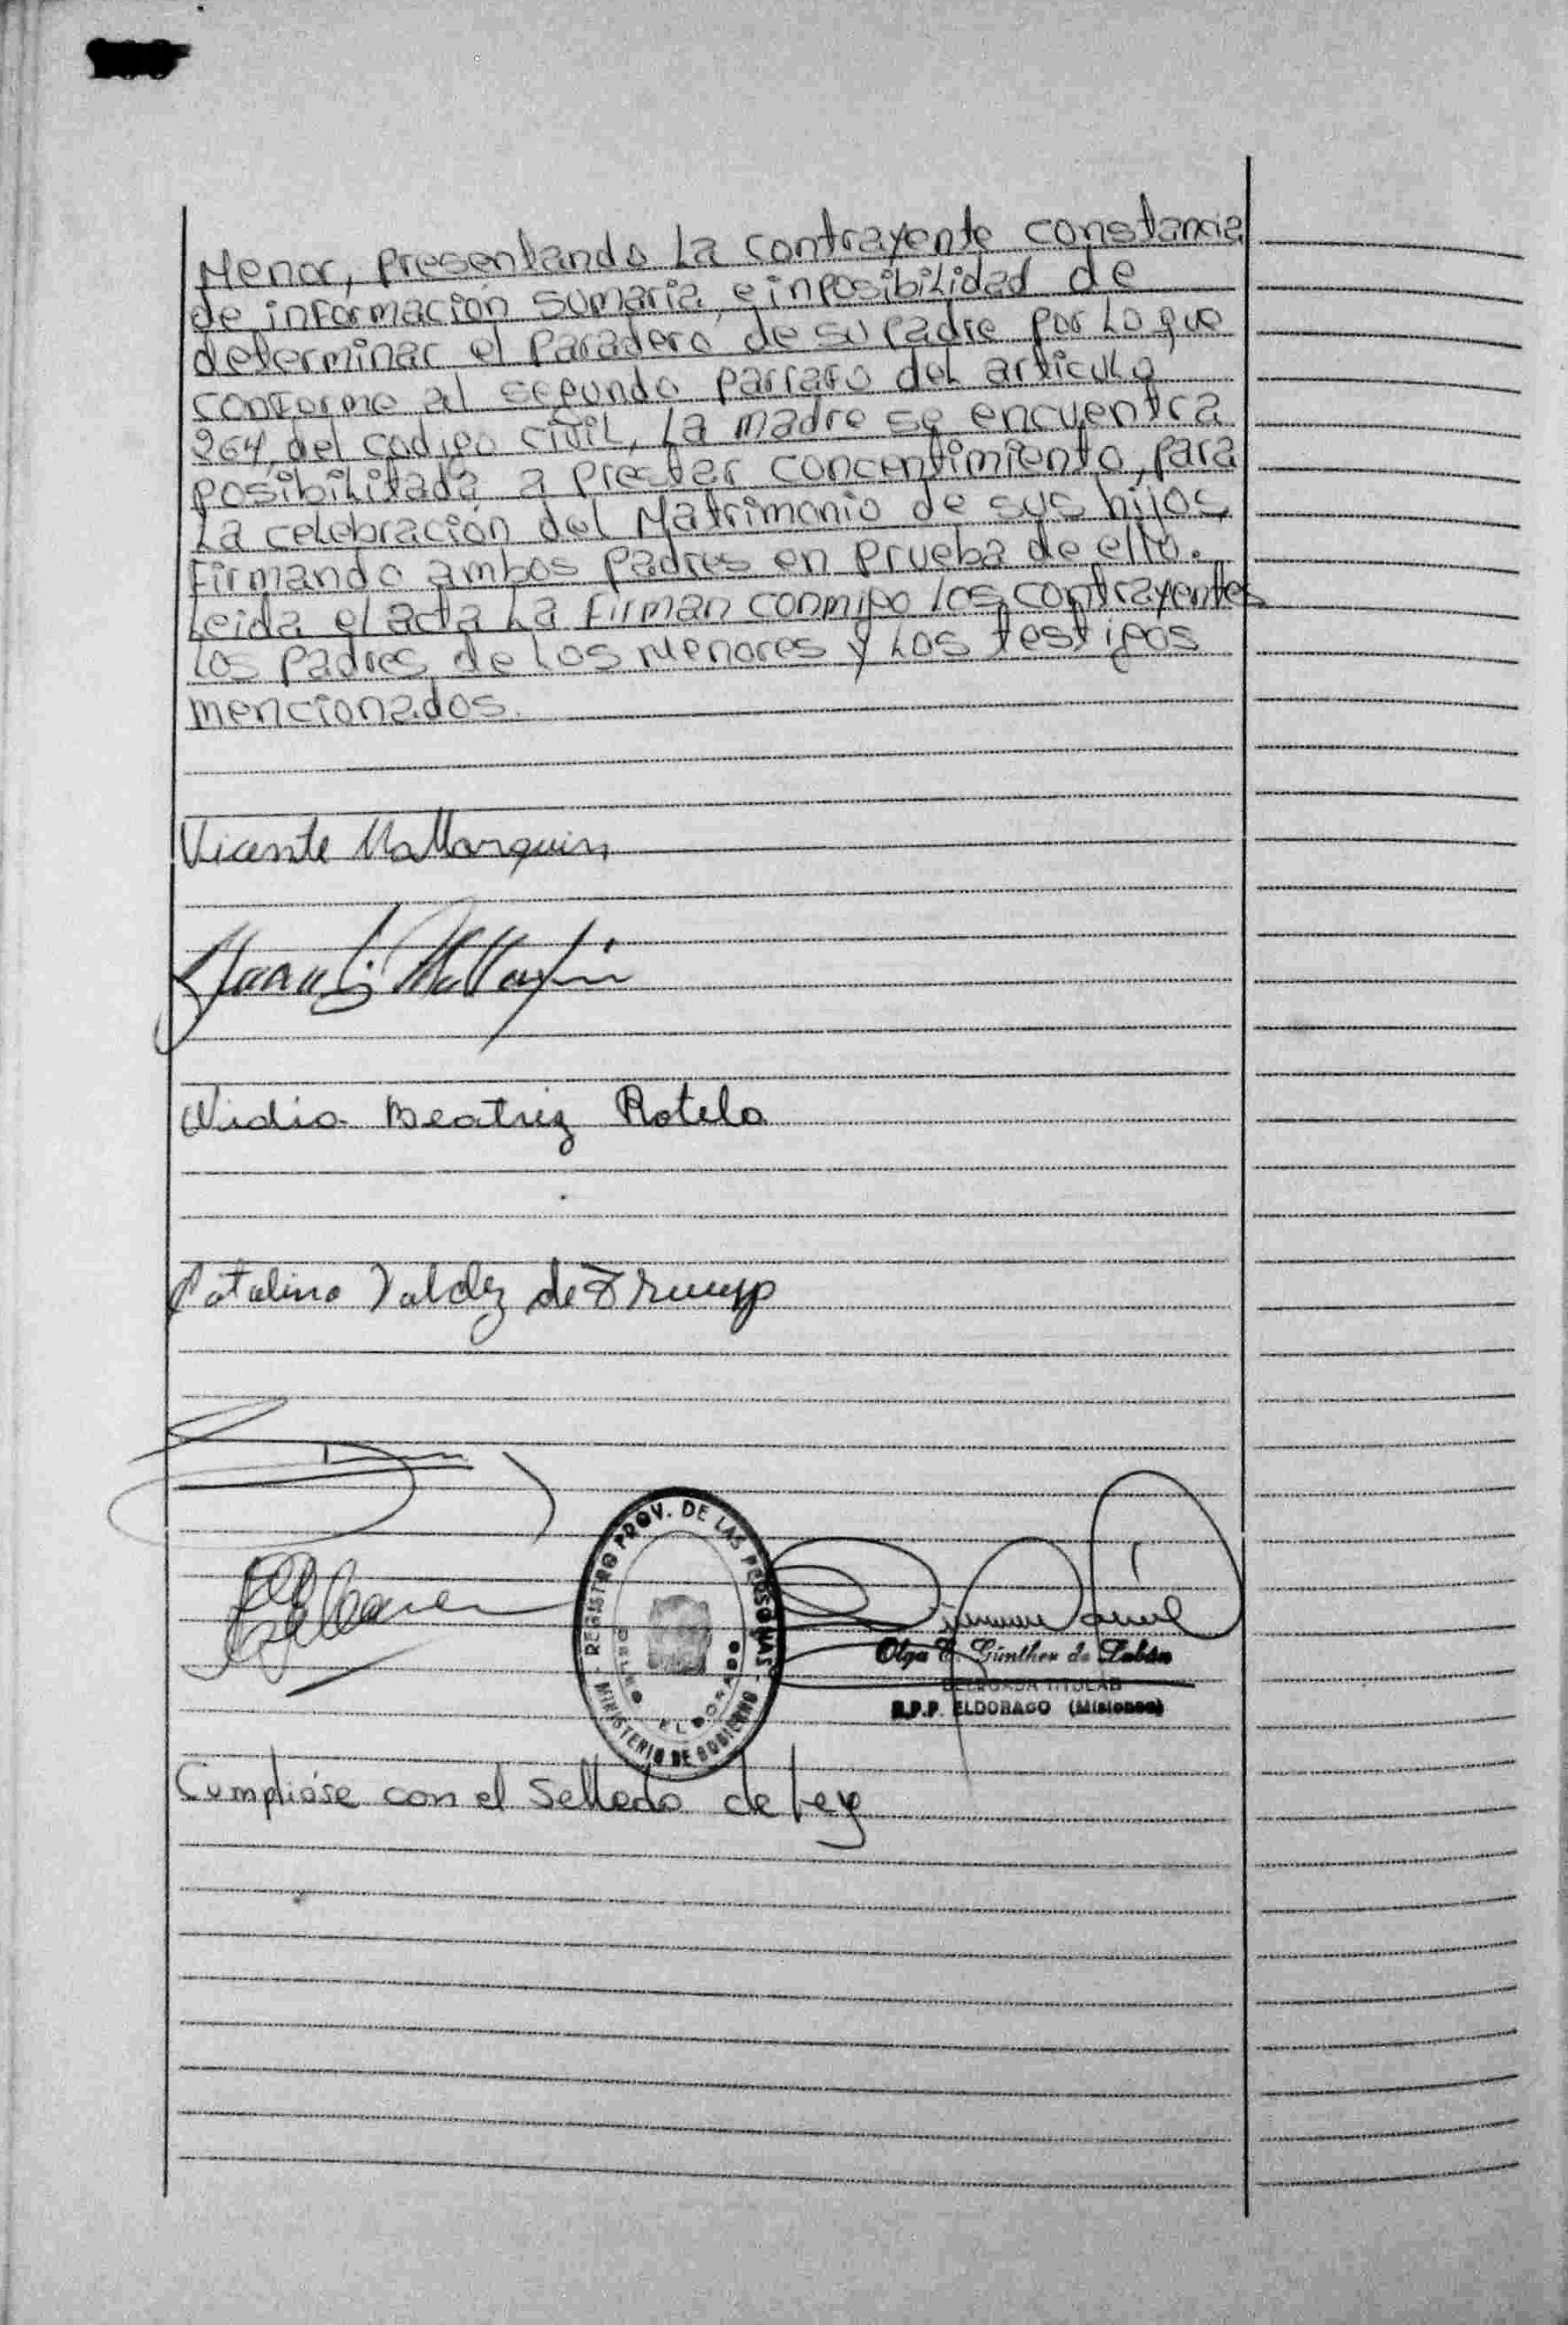 Menor, presentando la contrayente constancia
de información sumaria, e inposibilidad de
determinar el paradero de su padre por lo que
conforme al segundo parrafo del articulo
264, del codigo civil, la madre se encuentra
posibilitada a prestar concentimiento, para
la celebración del Matrimonio de sus hijos,
firmando ambos padres en prueba de ello.
Leida el acta la firman conmigo los contrayentes
los padres de los menores y los testigos
mencionados.
Vicente Mattarquin
Nidia Beatriz Rotela
Catalina Valdez de
REGISTRO PROV. DE LAS PERSONAS
MINISTERIO DE GOBIERNO
ELDORADO
Olga E. Günther de Labán
DELEGADA TITULAR
R.P.P. ELDORADO (Misiones)
Cumplióse con el Sellado de ley